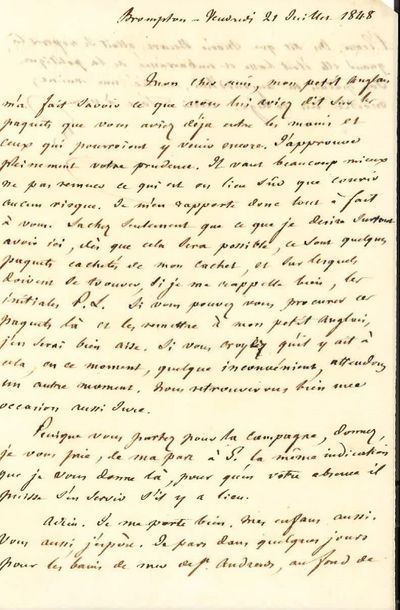 Brompton - Vendredi 21 Juillet 1848
Mon cher ami, mon petit Anglais
m'a fait savoir ce que vous lui aviez dit sur les
paquets que vous aviez déja entre les mains et
ceux qui pourroient y venir encore. J'approuve
pleinement votre prudence. Il vaut beaucoup mieux
ne pas remuer ce qui est en lieu sûr que courir
aucun risque. Je m'en rapporte donc tout à fait
à vous. Sachez seulement que ce que je désire surtout
avoir ici, dès que cela sera possible, ce sont quelques
paquets cachetés de mon cachet, et sur lesquels
doivent se trouver, si je me rappelle bien, les
initiales P. L. Si vous pouvez vous procurer ces
paquets là et les remettre à mon petit Anglais,
j'en serai bien aise. Si vous croyez qu'il y ait à
cela, en ce moment, quelque inconvénient, attendons
un autre moment. Nous retrouverons bien une
occasion aussi sure.
Puisque vous partez pour la campagne, donnez,
je vous prie, de ma part à la même indication
que je vous donne là, pour qu'en votre absence il
puisse s'en servir s'il y a lieu.
Adieu. Je me porte bien. Mes enfans aussi.
Vous aussi, j'espère. Je pars dans quelques jours
pour les bains de mer de St. Andrews, au fond de